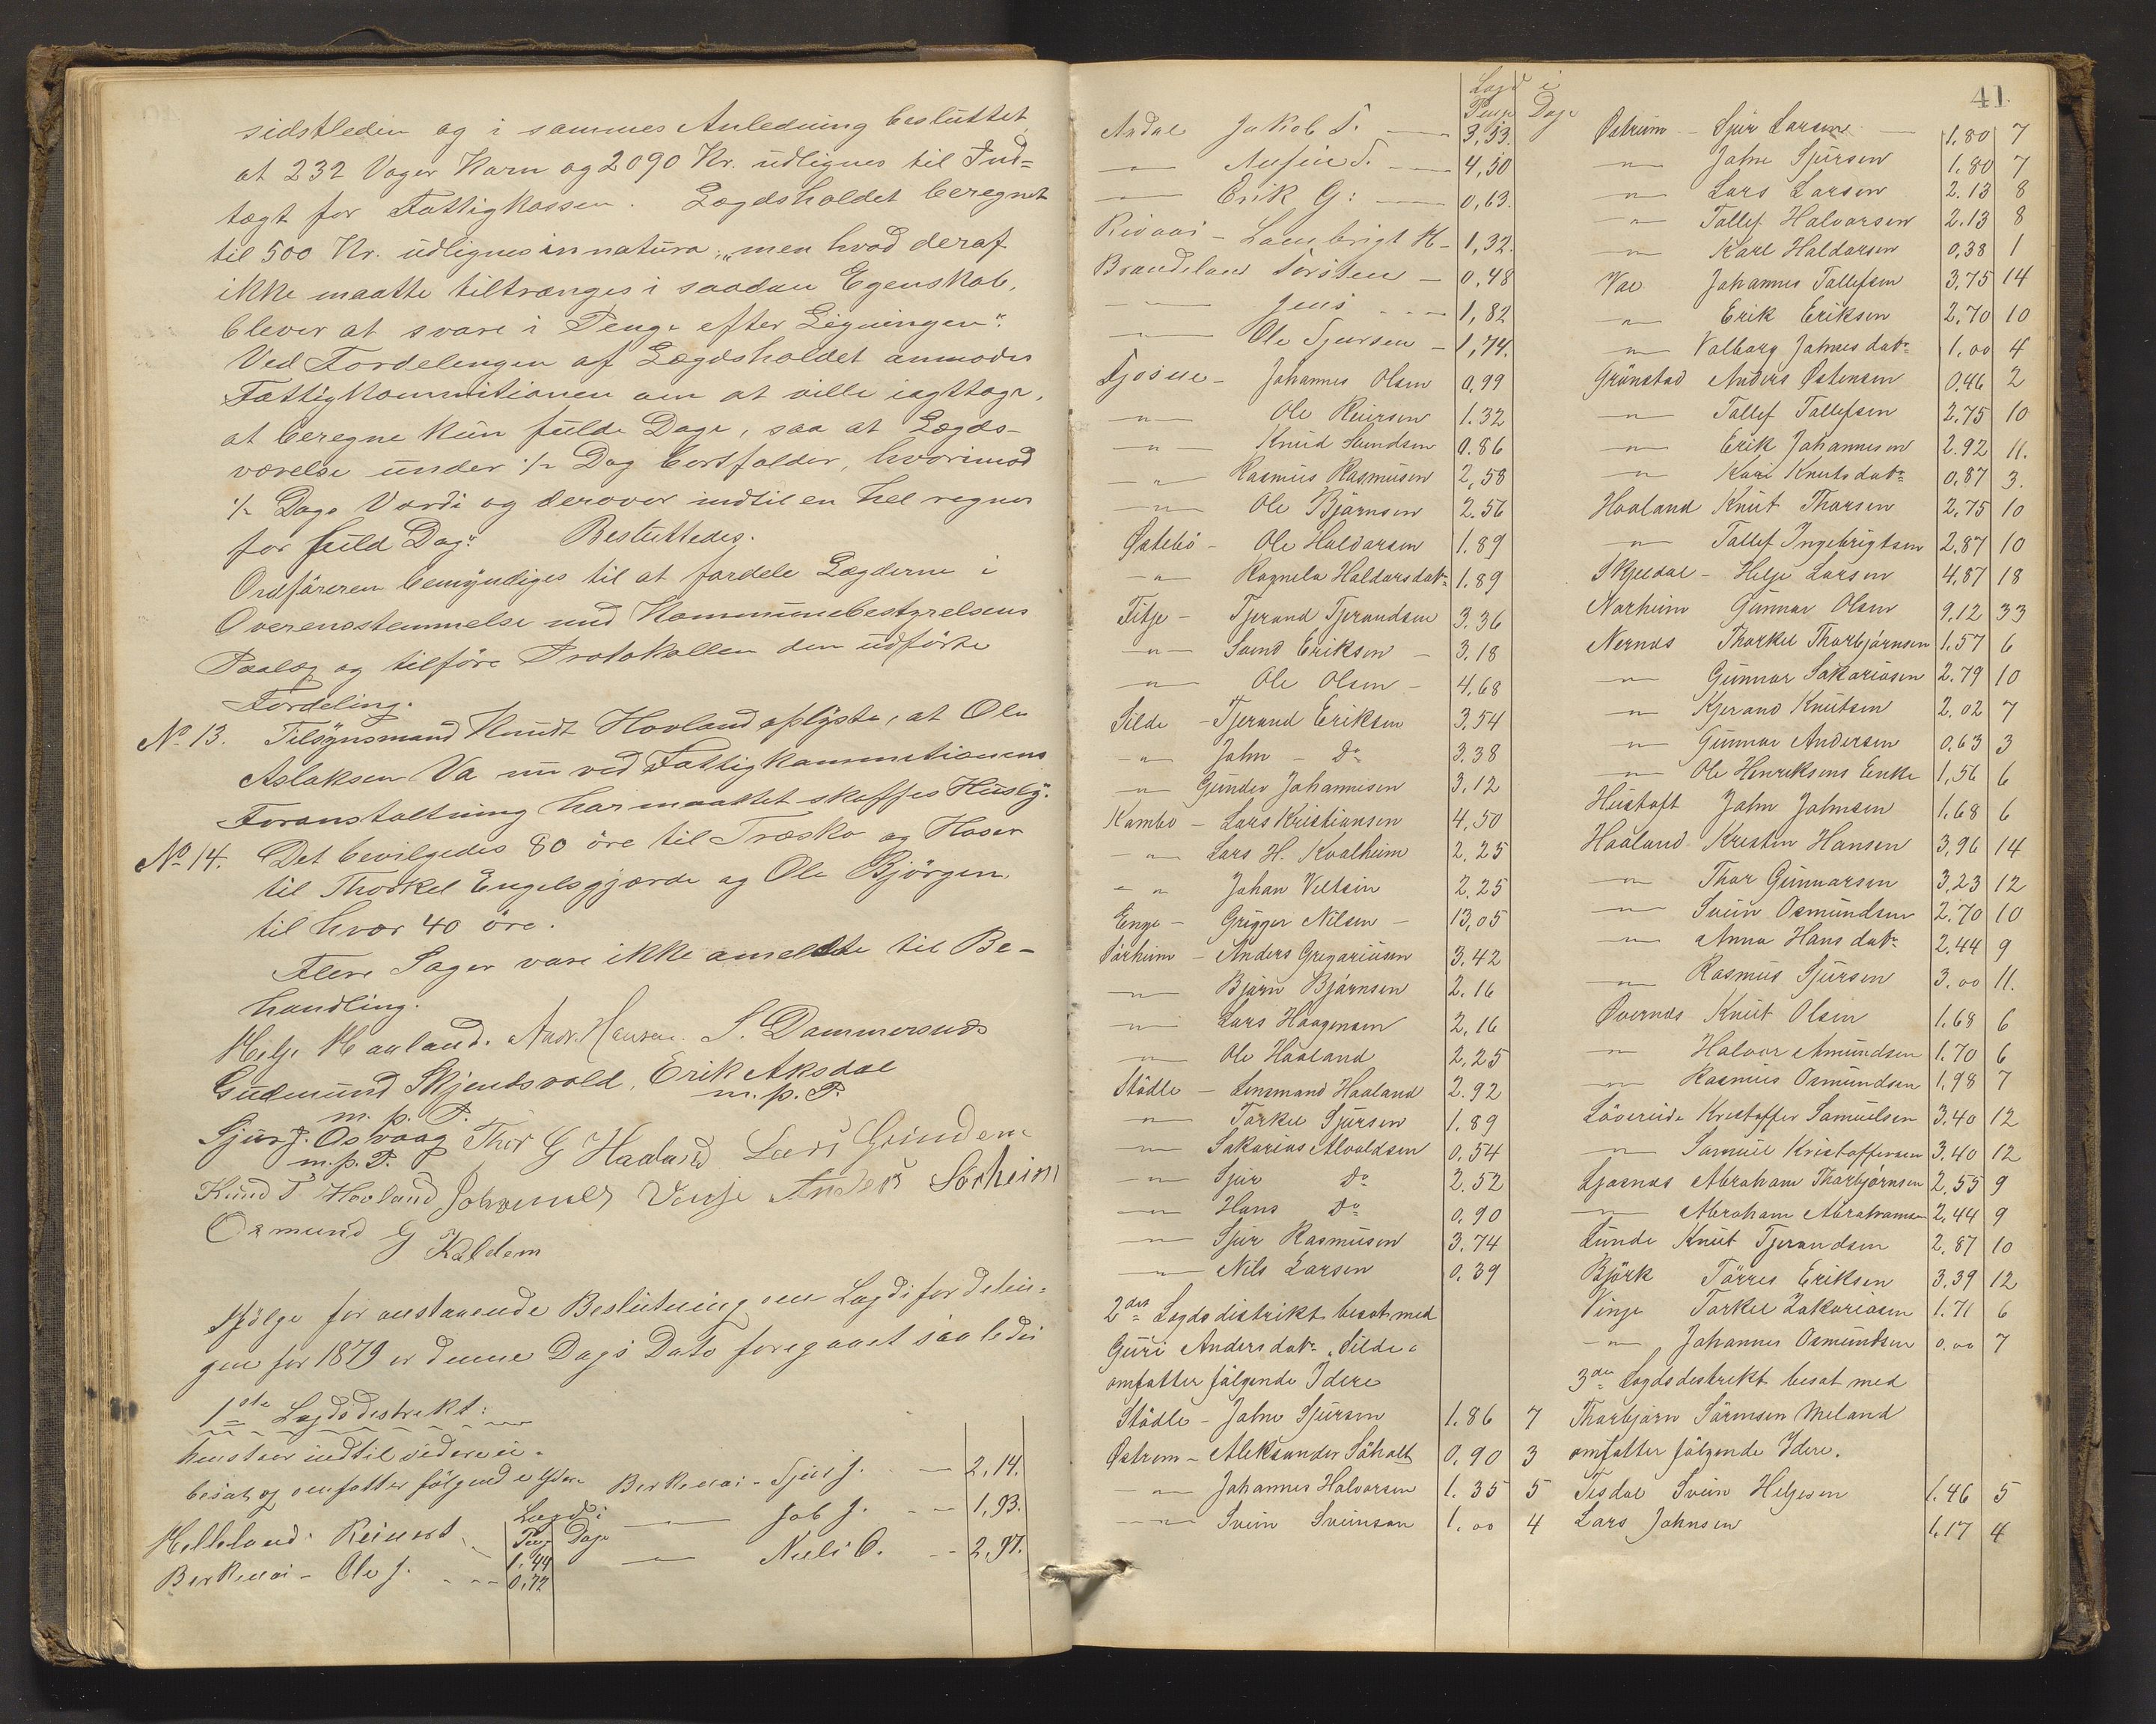 sidstleden og i sammes Anledning besluttet,
at 232 Voger Korn og 2090 Kr. udlignes til Ind-
tægt for Fattigkassen. Lægdsholdet beregnet
til 500 Kr. udlignes in natura, „men hvad deraf
ikke maatte tiltrænges i saadan Egenskab,
bliver at svare i Penge efter Ligningen".
Ved Fordelingen af Lægdsholdet anmodes
Fattigkommitionen om at ville iagttage,
at beregne kun fulde Dage, saa at Lægds-
værelse under ½ Dag bortfalder, hvorimod
½ Dags Værdi og derover indtil en hel regnes
for fuld Dag". Besluttedes.
Ordføreren bemyndiges til at fordele Lægderne i
Overensstemmelse med Kommunebestyrelsens
Paalæg og tilføre Protokollen den udførte
Fordeling.
No. 13. Tilsynsmand Knudt Hovland oplyste, at Ole
Aslaksen Va nu ved Fattigkommitionens
Foranstaltning har maattet skaffes Husly.
No. 14. Det bevilgedes 80 öre til Træsko og Hoser
til Thorkel Engelsgjærde og Ole Bjørgen,
til hver 40 öre.
Flere Sager vare ikke anmeldte til Be-
handling.
Helje Haaland. Andr. Hansen. S. Dammersnes
Gudmund Skjensvold, Erik Aksdal
m. p. P. m. p. P.
Sjur J. Osvaag Thor G Haaland Lars Grindem
m. p. P.
Knud T. Hovland Johannes Vinje Anders Sørheim
Osmund G Kaldem
Ifølge for anstaaende Beslutning om Lægdsfordelin-
gen for 1879 er denne Dags Dato foregaaet saaledes
1ste Lægdsdistrekt:
henstaar indtil videre u-
besat og omfatter følgende Ydere
Lægd i
Peng Dage
Helleland - Reinert 1,44
Berkenæs - Ole J. - - - 0,72
Berkenæs - Sjur J. — 2,14.
— Job J. - - 1,93.
— Nils O. - - 2,97.
41.
Lægd i
Penge Dage
Aadal Jakob T. — 3,53.
— T. — 4,50
— Erik G: — 0,63.
H — 1,32.
Torsten — 0,48
— Jens - - - 1,82
— Ole Sjursen — 1,74.
Johannes Olsen 0,99
—„— Ole 1.32
—„— Knud 0.86
—„— Rasmus Rasmusen 2,58
—„— Ole Bjørnsen 2.56
Østebø - Ole Haldorsen 1.89
—„— Ragnela Haldorsdatr 1.89
Fitje - Tjerand Tjerandsen 3.36
—„— Svend Eriksen — 3.18
—„— Ole Olsen — 4,68
Silde - Tjerand Eriksen 3.54
—„— John — Do 3.38
—„ Gunder Johannisen 3.12
Kambo - Lars Kristiansen 4,50
—„— Lars H. Kvalheim 2,25
—„— Johan Veltsin 2,25
Enge - Grigger Nilsen — 13,05
Sørheim - Anders Gregoriusen 3.42
—„— Bjørn Bjørnsen 2.16
—„— Lars Haagensen 2,16
—„— Ole Haaland 2,25
Stødle - Lensmand Haaland 2.92
—„— Torkel Sjursen 1.89
—„— Sakarias Alvaldsen 0,54
—„— Sjur Do 2.52
—„— Hans Do 0.90
—„— Sjur Rasmusen 3.74
—„— Nils Larsen 0.39
2det Lægdsdistrikt besat med
Guri Andersdatr. Silde
omfatter følgende Idere
Stødle - Johne Sjursen 1.86 7
Østrem - Aleksander Søholt 0,90 3
—„— Johannes Halvorsen 1.35 5
—„— Svein Sveinson 1.00 4
Østreim - Sjur Larsen — 1.80 7
—„— Johne Sjursen 1.80 7
—„— Lars Larsen 2.13 8
—„— Tollef Halvorsen 2.13 8
—„— Karl Haldorsen 0,38 1
Vae Johannes Tollefsen 3,75 14
—„— Erik Eriksen 2,70 10
—„— Valborg Johnesdatr 1.00 4
Grønstad Anders Østensen 0.46 2
—„— Tollef Tollefsen 2.75 10
—„— Erik Johannesen 2.92 11.
—„— Kari Knutsdatr 0,87 3.
Haaland Knut Thorsen 2,75 10
—„— Tollef Ingebrigtsen 2,87 10
Skjeldal - Helje Larsen 4,87 18
Norheim Gunnar Olsen 9,12 33
Nernes Thorkel Thorbjørnsen 1.57 6
—„— Gunnar Sakariasen 2.79 10
—„— Kjerand Knutsen 2,02 7
—„— Gunnar Andersen 0,63 3
—„— Ole Henriksens Enke 1,56 6
Hustoft John Johnsen 1.68 6
Haaland Kristen Hansen 3,96 14
—„— Thor Gunnarsen 3,23 12
—„— Svein Osmundsen 2,70 10
—„— Anna Hansdatr. 2,44 9
—„— Rasmus Sjursen 3.00 11.
Øvernes Knut Olsen 1.68 6
—„— Halvor Amundsen 1.70 6
—„— Rasmus Osmundsen 1,98 7
Løvereide Kristoffer Samuelsen 3.40 12
—„— Samuel Kristoffersen 3.40 12
Ljosnes Abraham Thorbjørnsen 2,55 9
—„— Abraham Abrahamsen 2,44 9
Lunde Knut Tjerandsen 2,87 10
Bjørk Tørres Eriksen 3.39 12
Vinje Torkel Zakariasen 1.71 6
—„— Johannes Osmundsen 0.00 7
3die Lægdsdestrikt besat med
Thorbjørn Sørensen Meland
omfatter følgende Ydere.
Tesdal Svein Heljesen 1.46 5
Lars Johnsen 1.17 4